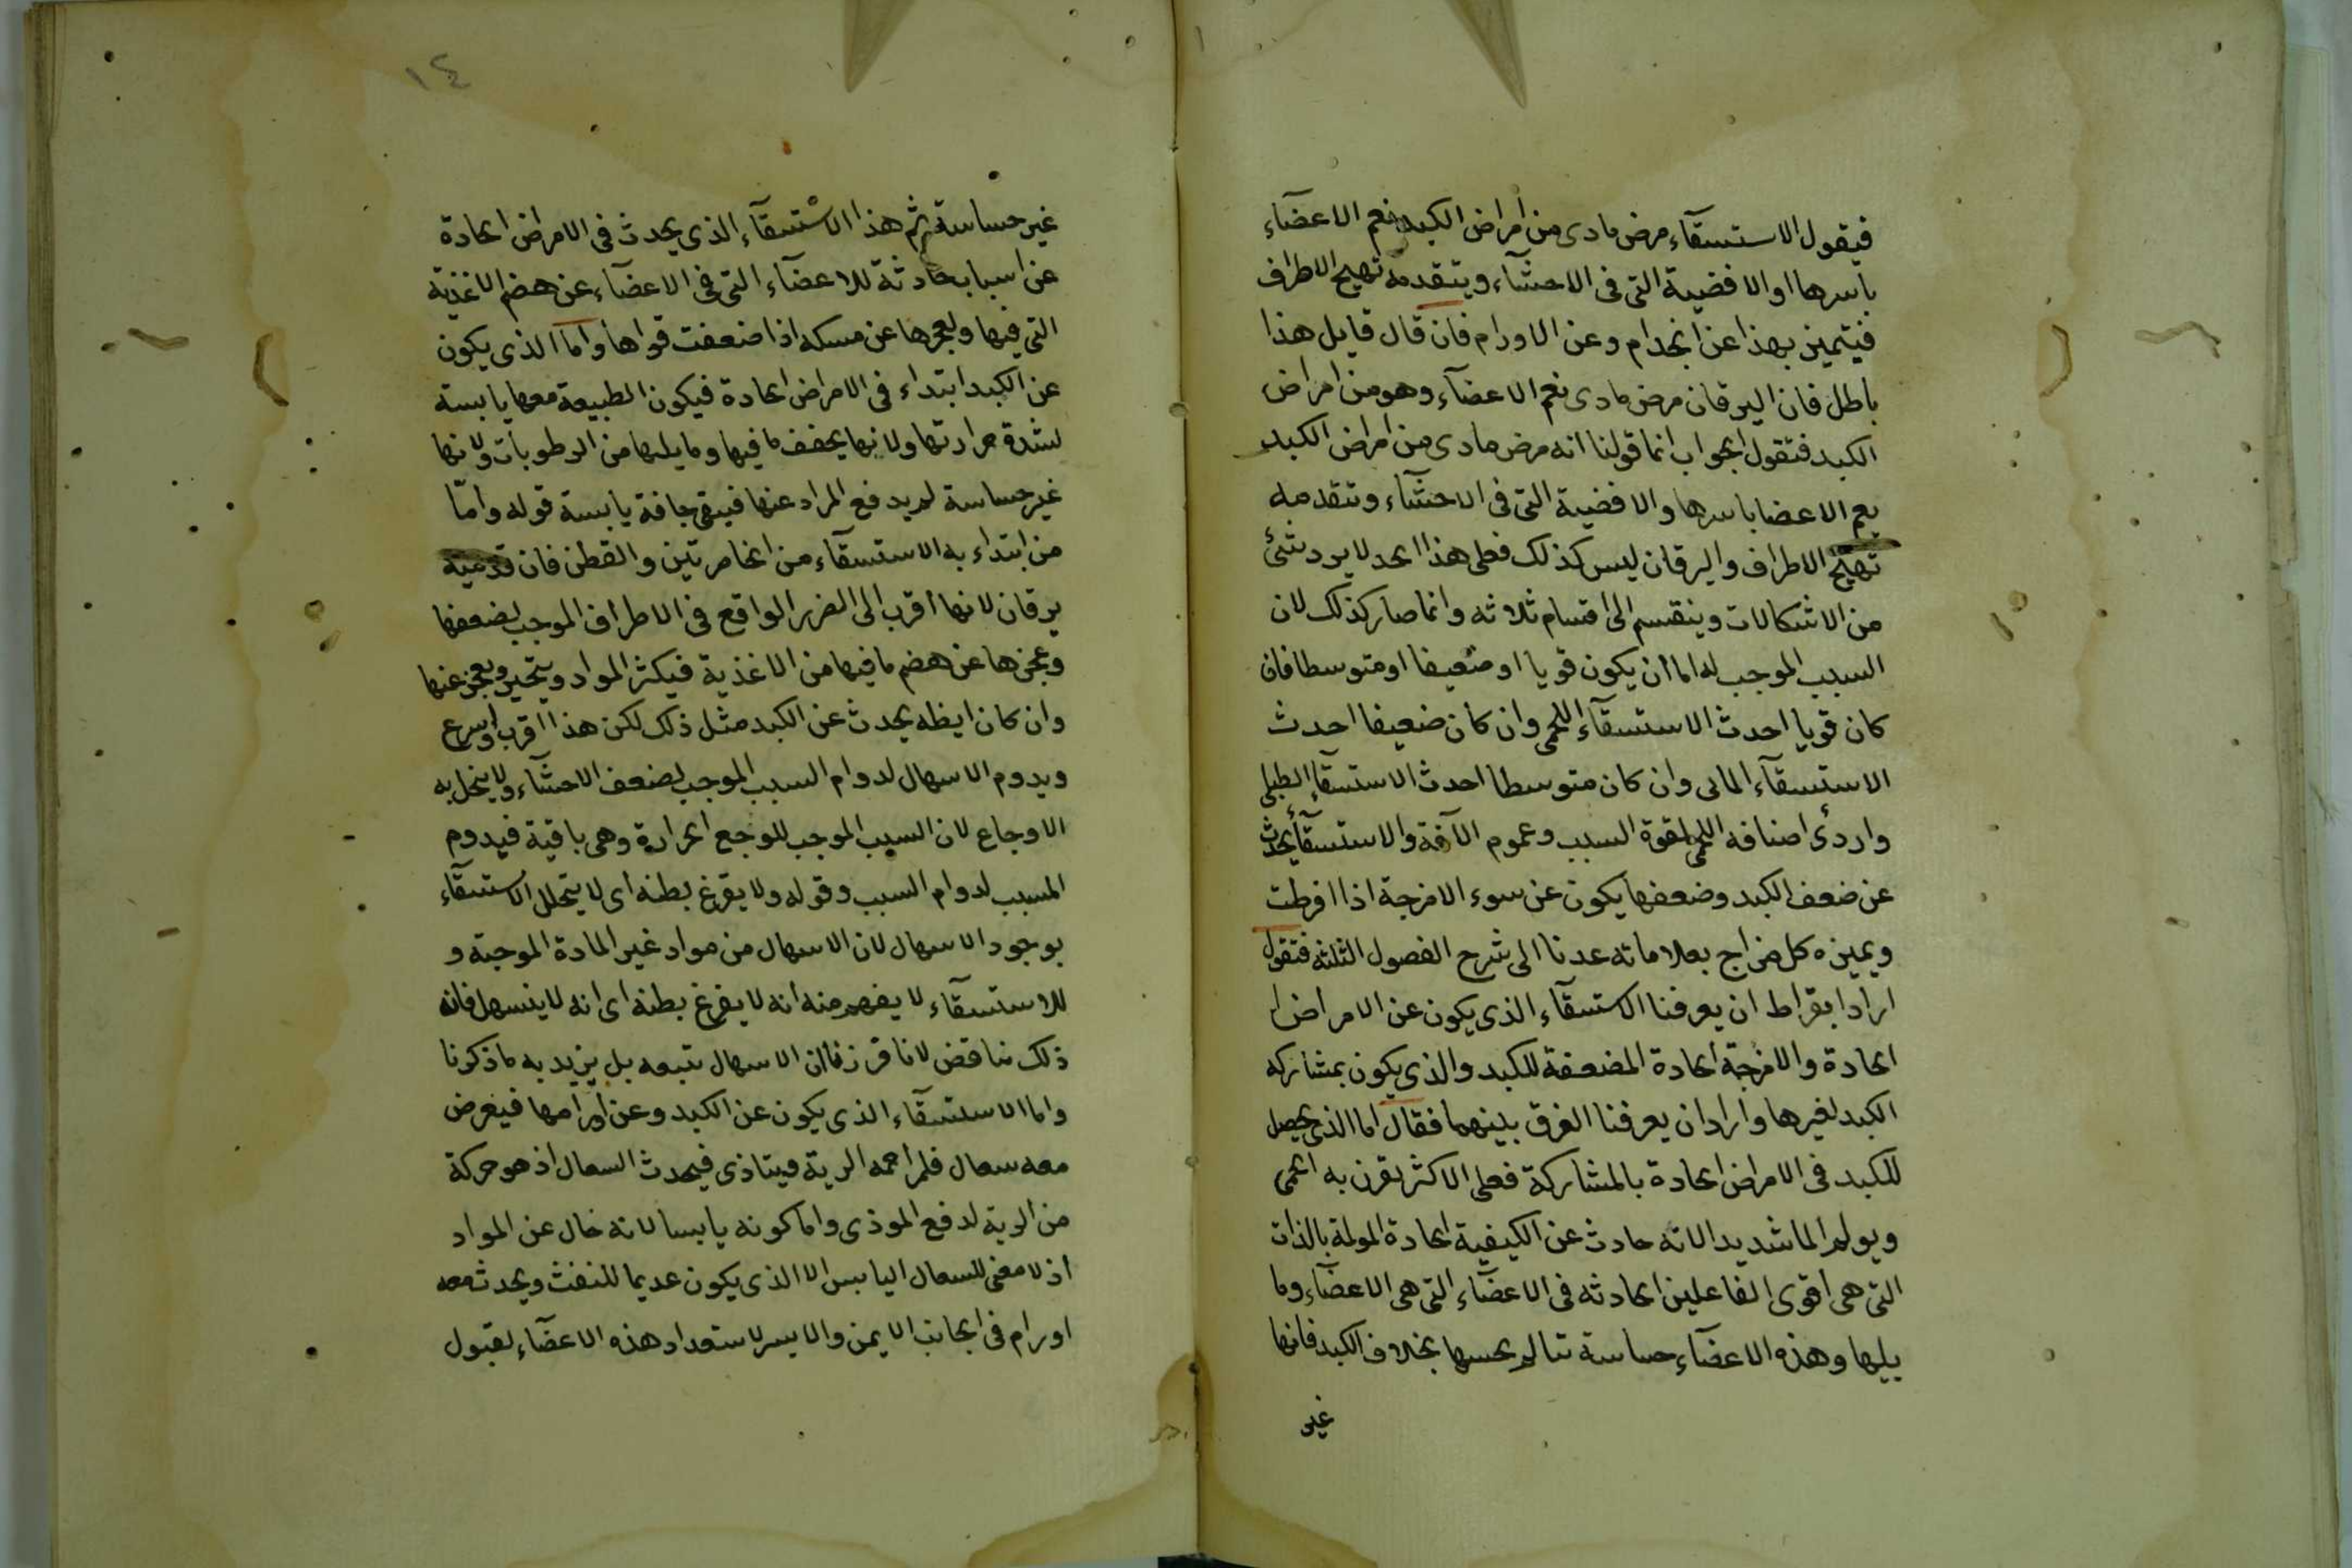 فيقول الاستسقآء مرض مادى من امراض الكبد نعم الاعضآء
باسرها او الافضية التى فى الاحشآء ويتقدمه تهيج الاطراف
فيتميز بهذا عن الجذام وعن الاورام فان قال قايل هذا
باطل فان اليرقان مرض مادى نعم الاعضآء وهو من امراض
الكبد فتقول الجواب انما قولنا انه مرض مادى من امراض الكبد
يعم الاعضا باسرها والافضية التى فى الاحشآء وتتقدمه
تهيج الاطراف واليرقان ليس كذلك فعلى هذا الحد لا يرد شئ
من الاشكالات وينقسم الى اقسام ثلاثه وانما صار كذلك لان
السبب الموجب له اما أن يكون قويا او ضعيفا او متوسطا فان
كان قويا احدث الاستسقآء اللحمى وان كان ضعيفا احدث
الاستسقآء المائى وان كان متوسطا احدث الاستسقآء الطبلى
واردئ اصنافه اللحمى لقوة السبب وعموم الآفة والاستسقآء يحدث
عن ضعف الكبد وضعفها يكون عن سوء الامزجة اذا افرطت
ويميزه كل مزاج بعلاماته عدنا الى شرح الفصول الثلثه فتقول
اراد ابقراط ان يعرفنا الاستسقآء الذى يكون عن الامراض
الحادة والامزجة الحادة المضعفة للكبد والذى يكون بمشاركه
الكبد لغيرها وأراد ان يعرفنا الفرق بينهما فقال اما الذى يحصل
للكبد فى الامراض الحادة بالمشاركة فعلى الاكثر يقرن به الحمى
ويولم الما شديدا لانه حادث عن الكيفية الحادة المولمة بالذات
التى هى اقوى الفاعلين الحادثه فى الاعضآء التى هى الاعضآء وما
يليها وهذه الاعضآء حساسة تتالم بحسها بخلاف الكبد فانها
غير
١٤
غير حساسة ثم هذا الاستسقآء الذى يحدث فى الامراض الحادة
عن اسباب حادثة للاعضآء التى فى الاعضآء عن هضم الاغذية
التى فيها ولعجزها عن مسكه اذا ضعفت قواها واما الذى يكون
عن الكبد ابتداء فى الامراض الحادة فيكون الطبيعة معها يابسة
لشدة حرارتها ولانها يجفف ما فيها وما يليها من الرطوبات ولانها
غير حساسة لم يدفع المراد عنها فيبقى جافة يابسة قوله وامّا
من ابتداء به الاستسقآء من الخاصرتين والقطن فان قدميه
يرقان لانها أقرب الى الضرر الواقع فى الاطراف الموجب لضعفها
وعجزها عن هضم ما فيها من الاغذية فيكثر المواد ويتحير ويعجز عنها
وان كان ايظه يحدث عن الكبد مثل ذلك لكن هذا اقرب واسرع
ويدوم الاسهال لدوام السبب الموجب لضعف الاحشآء ولا ينحل به
الاوجاع لان السبب الموجب للوجع الحرارة وهى باقية فيدوم
المسبب لدوام السبب وقوله ولا يفرغ بطنه اى لا يتحلل الاستسقآء
بوجود الاسهال لان الاسهال من مواد غير المادة الموجبة و
للاستسقآء لا يفهم منه انه لا يفرغ بطنه اى انه لا ينسهل فانه
ذلك مناقض لانا قرزنا ان الاسهال تتبعه بل يزيد به ما ذكرنا
واما الاستسقآء الذى يكون عن الكبد وعن اورامها فيعرض
معه سعال فلمزاحمه الرية فيتاذى فيحدث السعال اذ هو حركة
من الرية لدفع الموذى واما كونه يابسا لانه خال عن المواد
اذ لا معنى للسعال اليابس الا الذى يكون عديما للنفث ويحدث معه
اورام فى الجانب الايمن والايسر لاستعداد هذه الاعضآء لقبول